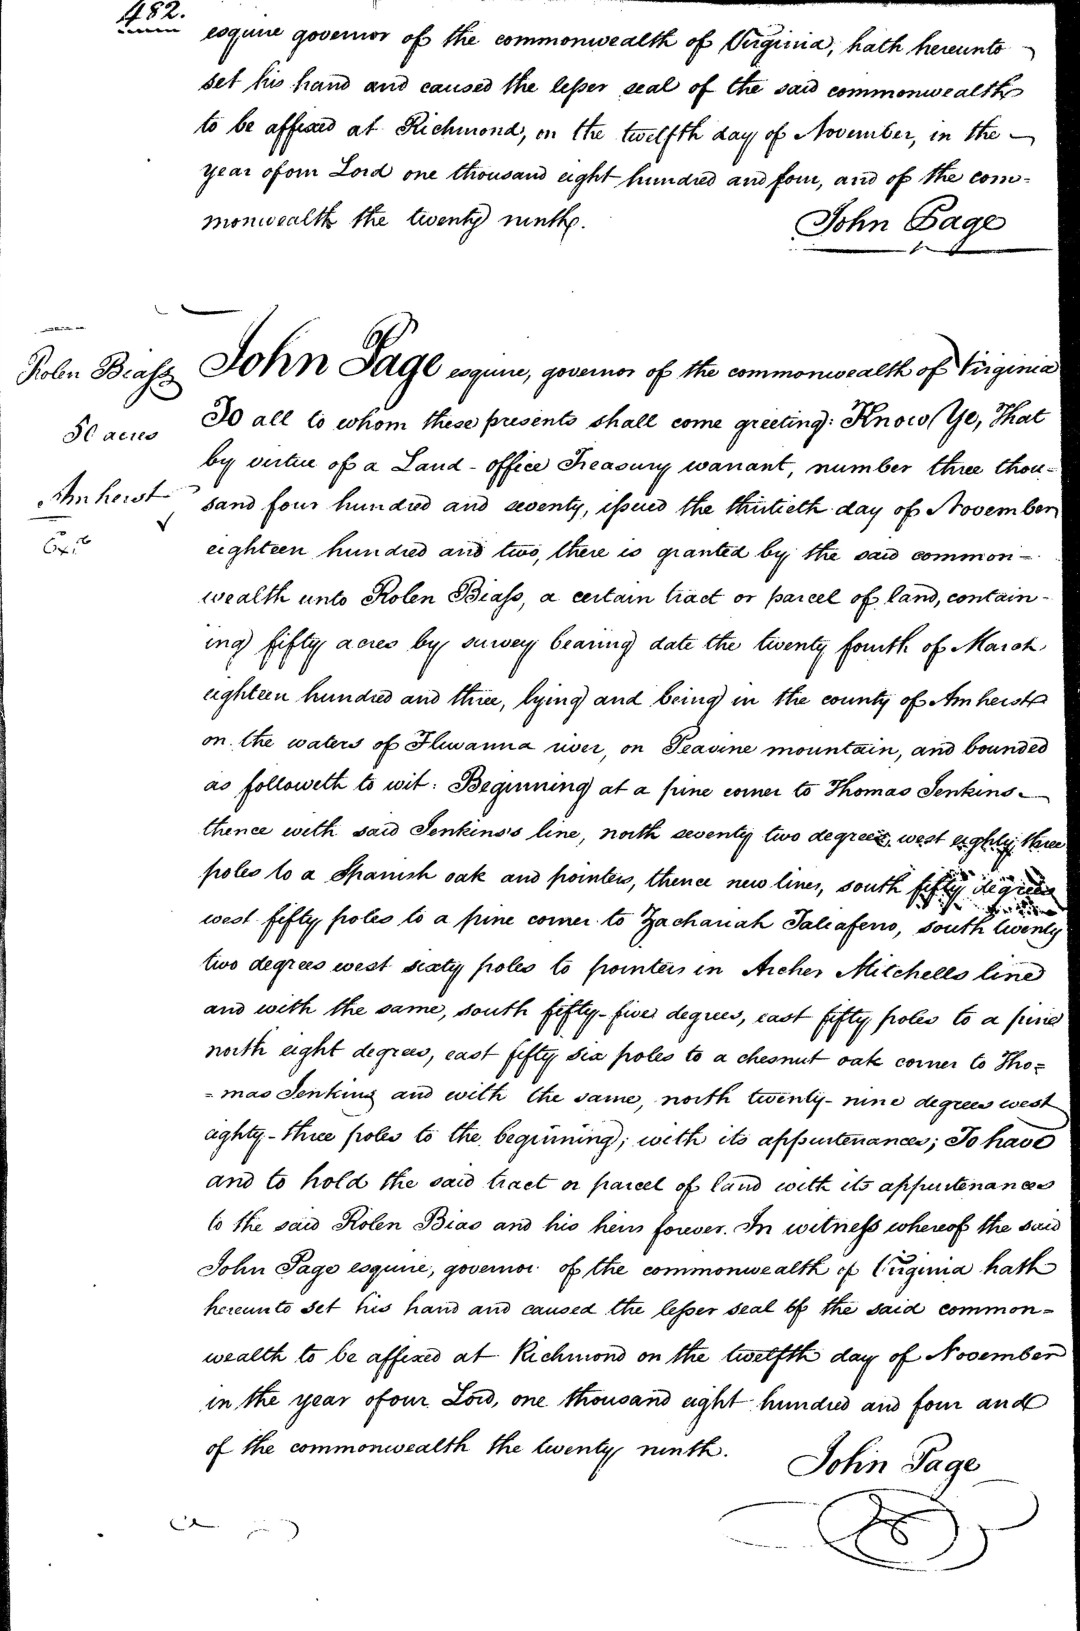 482.
esquire governor of the commonwealth of Virginia, hath hereunto
set his hand and caused the lesser seal of the said commonwealth
to be affixed at Richmond, on the twelfth day of November, in the
year of our Lord one thousand eight hundred and four, and of the com-
monwealth the twenty ninth.
John Page
Rolen Biass
50 acres
Amherst
John Page esquire, governor of the commonwealth of Virginia
To all to whom these presents shall come greeting: Know Ye, That
by virtue of a Land-office Treasury warrant, number three thou-
sand four hundred and seventy, issued the thirtieth day of November
eighteen hundred and two, there is granted by the said common-
wealth unto Rolen Biass, a certain tract or parcel of land, contain-
ing fifty acres by survey bearing date the twenty fourth of March
eighteen hundred and three, lying and being in the county of Amherst
on the waters of Fluvanna river, on Peavine mountain, and bounded
as followeth to wit: Beginning at a pine corner to Thomas Jenkins
thence with said Jenkins's line, north seventy two degrees, west eighty three
poles to a Spanish oak and pointers, thence new lines, south fifty degrees
west fifty poles to a pine corner to Zachariah Taliaferro, south twenty
two degrees west sixty poles to pointers in Archer Mitchells line
and with the same, south fifty-five degrees, east fifty poles to a pine
north eight degrees, east fifty six poles to a chesnut oak corner to Tho=
=mas Jenkins and with the same, north twenty-nine degrees west
eighty-three poles to the beginning; with its appurtenances; To have
and to hold the said tract or parcel of land with its appurtenances
to the said Rolen Bias and his heirs forever. In witness whereof the said
John Page esquire, governor of the commonwealth of Virginia hath
hereunto set his hand and caused the lesser seal of the said common=
wealth to be affixed at Richmond on the twelfth day of November
in the year of our Lord, one thousand eight hundred and four and
of the commonwealth the twenty ninth.
John Page